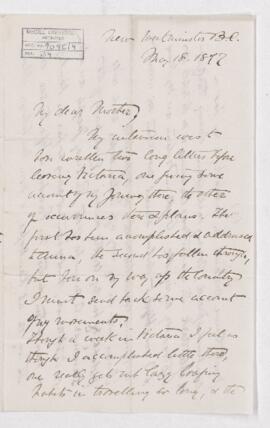 McGILL UNIVERSITY
ARCHIVES
ACC. NO.
REF.
New Westminster B.C.
May 18. 1877
My dear Mother,
My intention was to
have written two long letters before
leaving Victoria, one giving some
account of my journey there, the other
of occurrences there & plans. The
first has been accomplished & addressed
to Anna, the second has fallen through,
but here on my way up the Country
I must send back some account
of my movements.
Though a week in Victoria I feel as
though I accomplished little there,
one really gets into lazy loafing
habits in travelling so long, & the